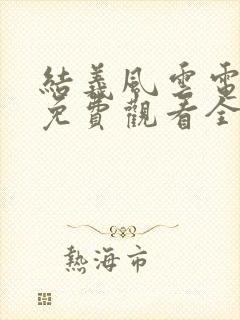 結義風雲電
免費觀看全
熱海市